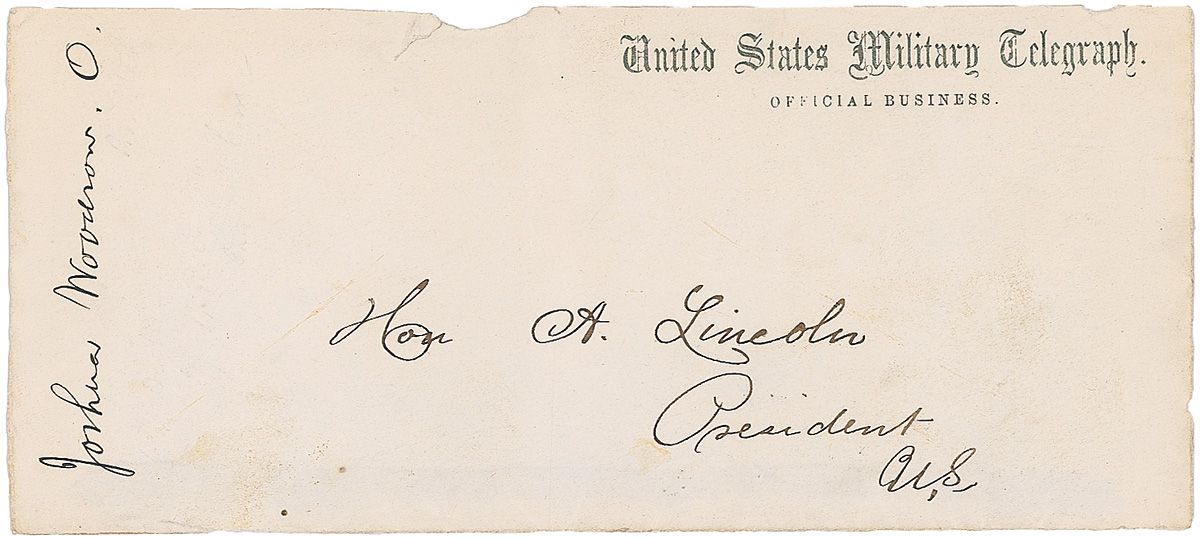 United States Military Telegraph.
OFFICIAL BUSINESS.
Joshua Woodrow. O.
Hon A. Lincoln
President
U.S.